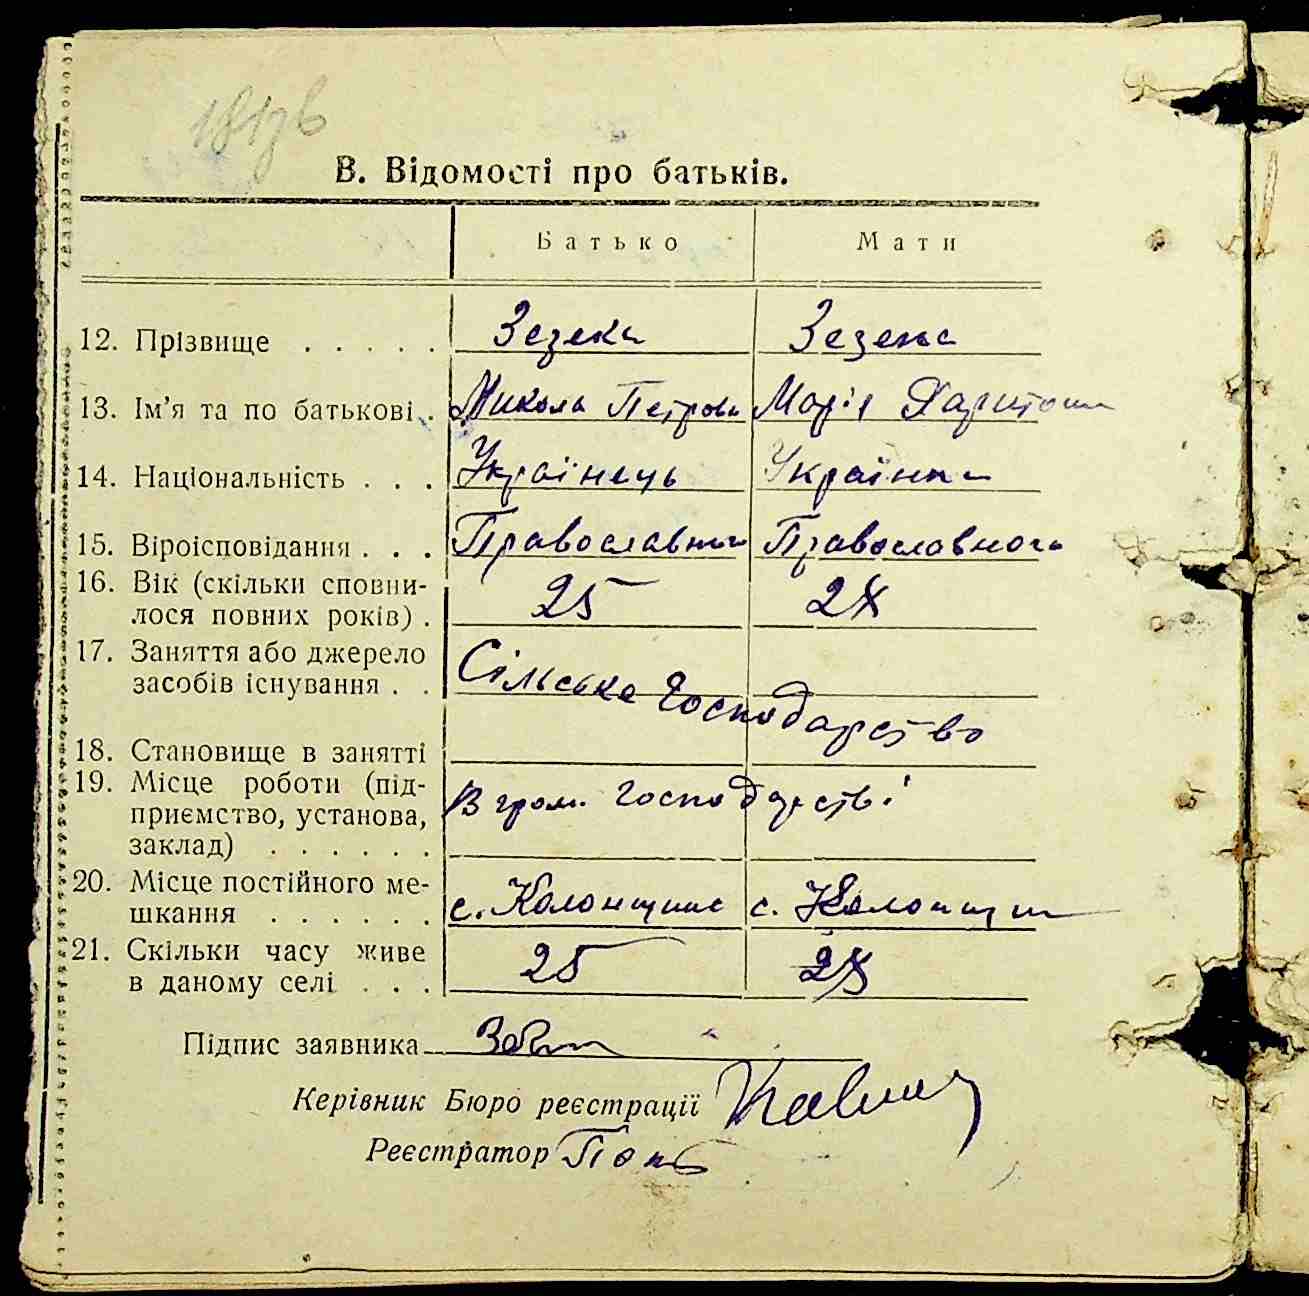 В. Відомості про батьків.
Батько Мати
12. Прізвище . . . . . Зезека Зезека
13. Ім'я та по батькові . Микола Петров Марія Харитон
14. Національність . . . Українець Українка
15. Віроісповідання . . . Православный Православного
16. Вік (скільки сповни-
лося повних років) . 25 24
17. Заняття або джерело
засобів існування . . Сільське Господарство
18. Становище в занятті
19. Місце роботи (під-
приємство, установа, В гром. господарстві
заклад) . . . . . .
20. Місце постійного ме-
шкання . . . . . . с. Колонщина с. Колонщин
21. Скільки часу живе
в даному селі . . . 25
Підпис заявника
Керівник Бюро реєстрації
Реєстратор